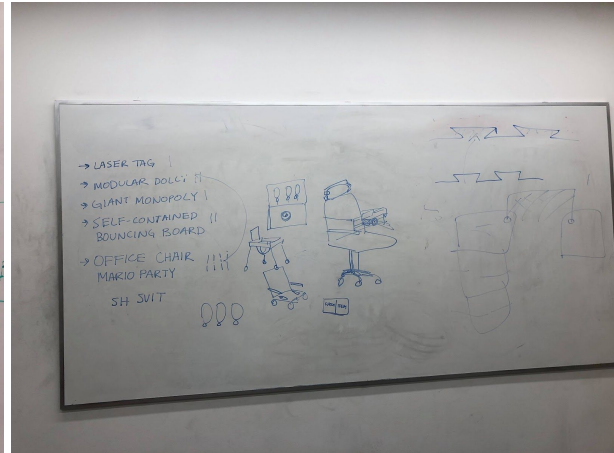 → LASER TAG
→ MODULAR
→ GIANT MONOPOLY
→ SELF-CONTAINED
BOUNCING BOARD
→ OFFICE CHAIR
MARIO PARTY
SH SUIT